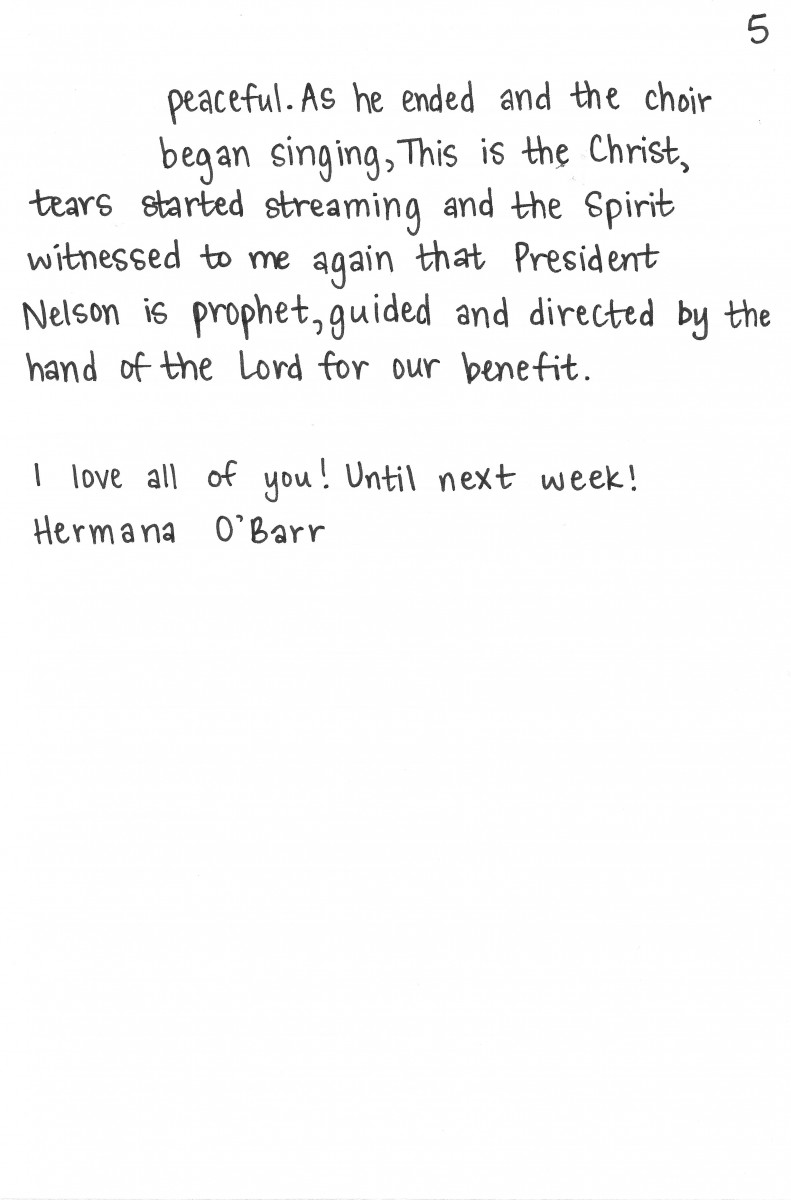 5
peaceful. As he ended and the choir
began singing, This is the Christ,
tears started streaming and the Spirit
witnessed to me again that President
Nelson is prophet, guided and directed by the
hand of the Lord for our benefit.
I love all of you! Until next week!
Hermana O'Barr